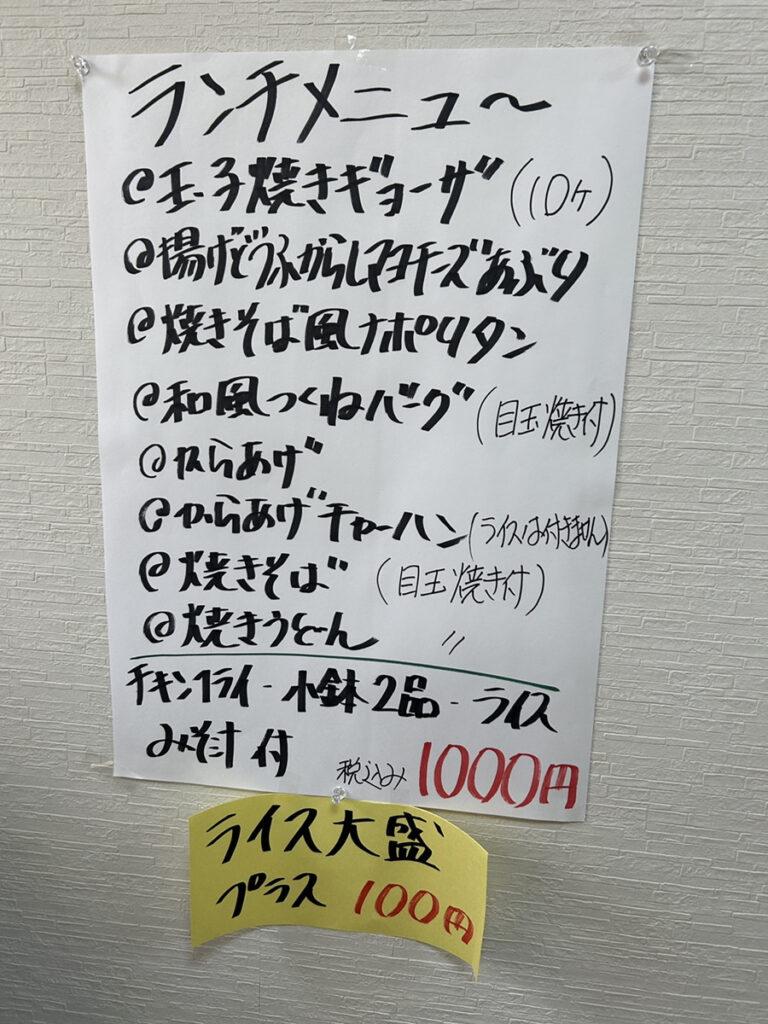 ランチメニュ～
@玉子焼きギョーザ(10ケ)
@揚げどうふからしマヨチーズあぶり
@焼きそば風ナポリタン
@和風つくねバーグ(目玉焼き付)
@からあげ
@からあげチャーハン(ライスは付きません)
@焼きそば(目玉焼き付)
@焼きうどん 〃
チキンフライ-小鉢2品-ライス
みそ汁付
税込み1000円
ライス大盛
プラス 100円